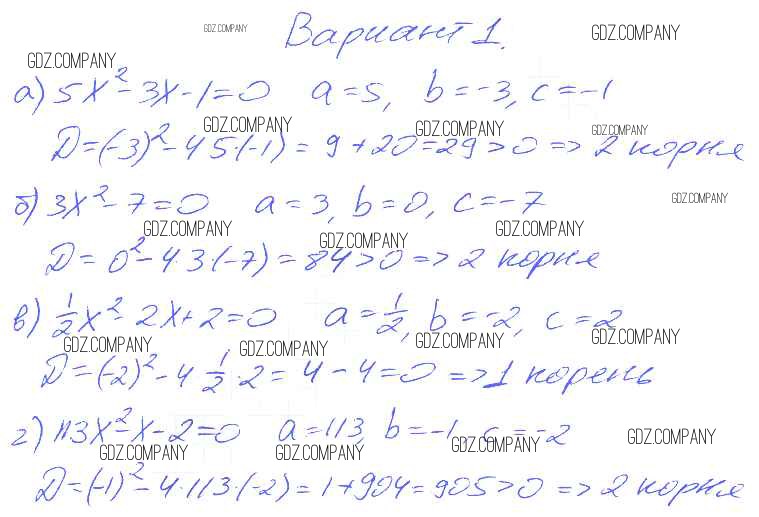 GDZ.COMPANY Вариант 1. GDZ.COMPANY
GDZ.COMPANY
а) 5x² - 3x - 1 = 0 a = 5, b = -3, c = -1
GDZ.COMPANY GDZ.COMPANY GDZ.COMPANY
D = (-3)² - 4 5·(-1) = 9 + 20 = 29 > 0 => 2 корня
б) 3x² - 7 = 0 a = 3, b = 0, c = -7 GDZ.COMPANY
GDZ.COMPANY GDZ.COMPANY GDZ.COMPANY
D = 0² - 4·3·(-7) = 84 > 0 => 2 корня
в) 1/2x² - 2x + 2 = 0 a = 1/2, b = -2, c = 2
GDZ.COMPANY GDZ.COMPANY GDZ.COMPANY GDZ.COMPANY
D = (-2)² - 4 1/2·2 = 4 - 4 = 0 => 1 корень
г) 113x² - x - 2 = 0 a = 113, b = -1, c = -2 GDZ.COMPANY
GDZ.COMPANY GDZ.COMPANY GDZ.COMPANY
D = (-1)² - 4·113·(-2) = 1 + 904 = 905 > 0 => 2 корня